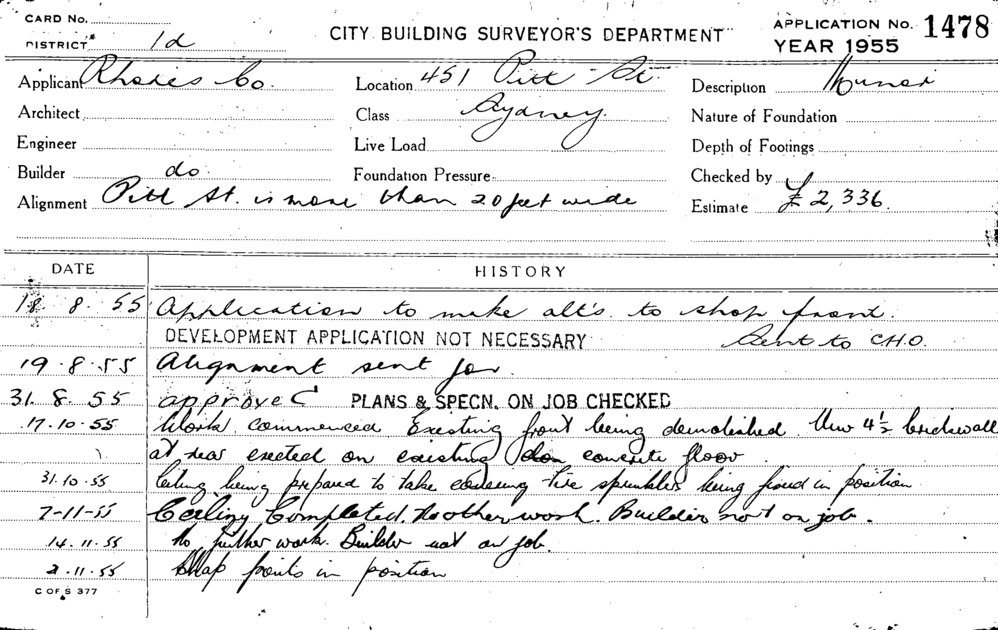 CARD No.
DISTRICT 1d
CITY BUILDING SURVEYOR'S DEPARTMENT
APPLICATION No. 1478
YEAR 1955
Applicant Rhodes Co.
Location 451 Pitt St.
Description Minor
Architect
Class Sydney.
Nature of Foundation
Engineer
Live Load
Depth of Footings
Builder do.
Foundation Pressure
Checked by
Alignment Pitt St. is more than 20 feet wide
Estimate £2,336.
DATE HISTORY
18 8. 55 Application to make alt's. to shop front.
DEVELOPMENT APPLICATION NOT NECESSARY Sent to C.H.O.
19.8.55 Alignment sent for.
31. 8. 55 approved PLANS & SPECN. ON JOB CHECKED
17.10.55 Work commenced Existing front being demolished. New 4½ brickwall
at rear erected on existing concrete floor.
31.10.55 Ceiling being prepared to take fire sprinklers being fixed in position.
7-11-55 Ceiling Completed. No other work. Builder not on job.
14.11.55 No further work. Builder not on job.
2.11.55 Shop fronts in position
C OF S 377